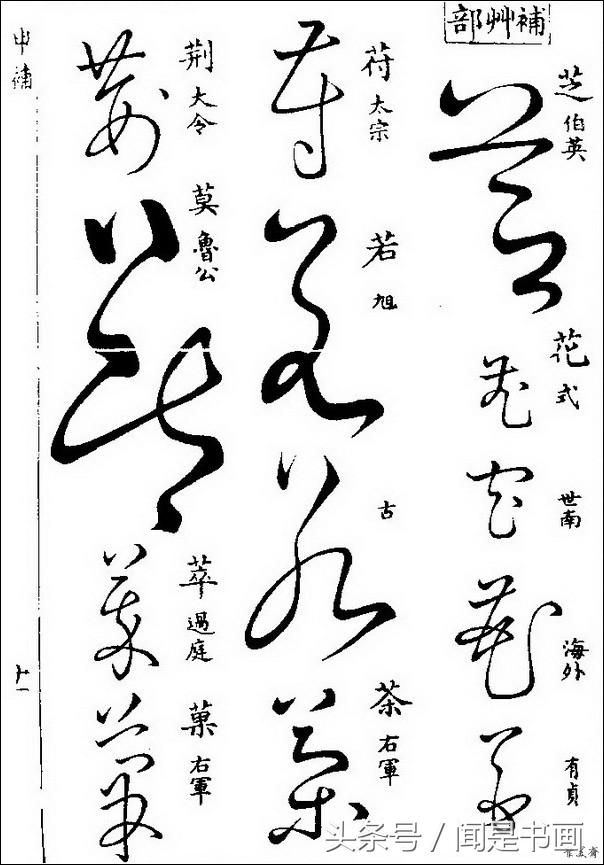 補艸部
芝 伯英
花 式
世南
海外
有貞
苻 太宗
若 旭
古
荼 右軍
荆 大令
莫 魯公
萃 過庭
菓 右軍
申補
十一
头条号 / 闻是书画